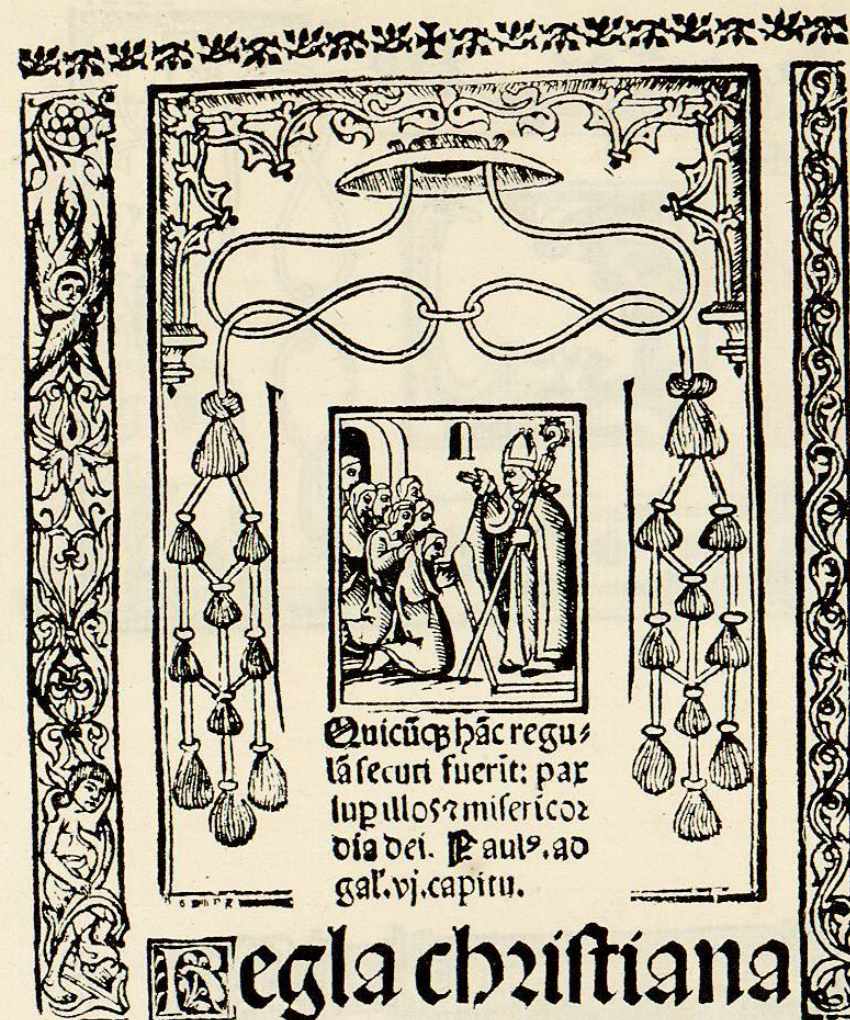 Quicūqꝫ hāc regu⸗
lā ſecuti fuerīt: pax
ſuꝑ illos ⁊ miſericoꝛ
dia dei. Paulꝰ. ad
gaƚ. vj. capitu.
Regla chꝛiſtiana